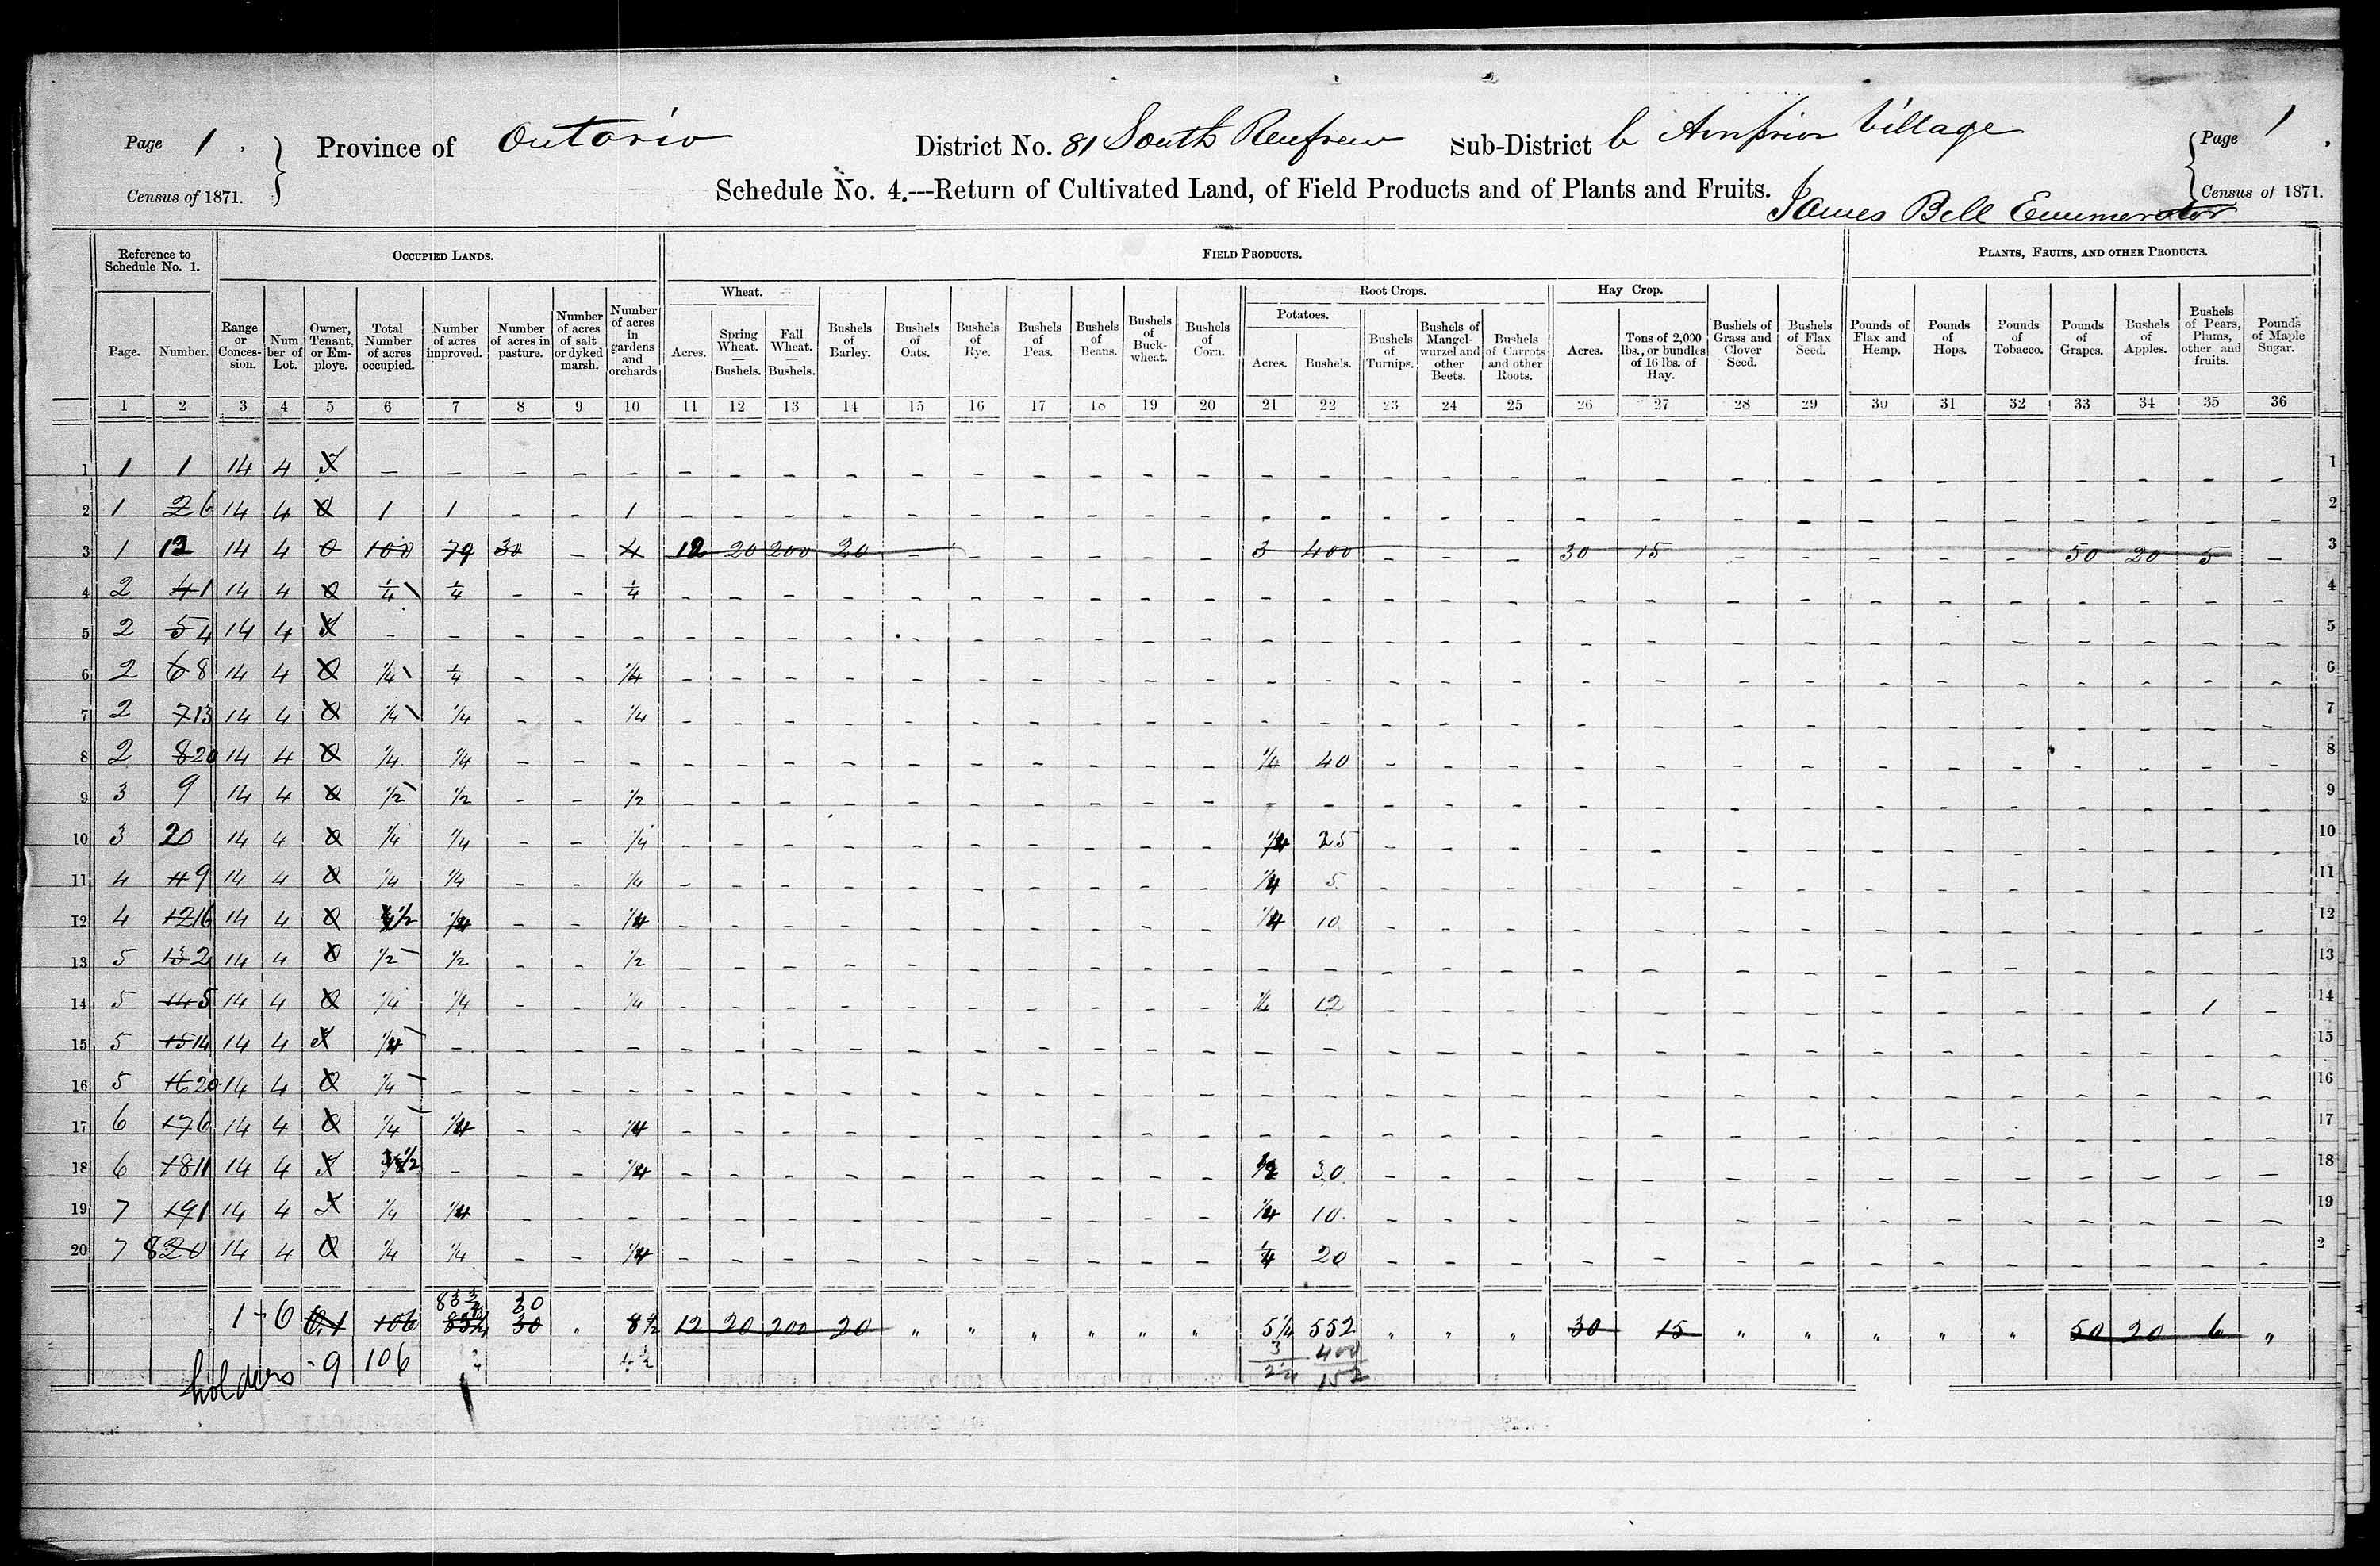 Page 1. Province of Ontario District No. 81 South Renfrew Sub-District b Arnprior Village Page 1.
Census of 1871. Schedule No. 4.---Return of Cultivated Land, of Field Products and of Plants and Fruits. Census of 1871.
James Bell Enumerator
Reference to Schedule No. 1. OCCUPIED LANDS. FIELD PRODUCTS. PLANTS, FRUITS, AND OTHER PRODUCTS.
Wheat. Root Crops. Hay Crop.
Potatoes.
Page. Number. Range or Concession. Number of Lot. Owner, Tenant, or Employe. Total Number of acres occupied. Number of acres improved. Number of acres in pasture. Number of acres of salt or dyked marsh. Number of acres in gardens and orchards Acres. Spring Wheat. — Bushels. Fall Wheat. — Bushels. Bushels of Barley. Bushels of Oats. Bushels of Rye. Bushels of Peas. Bushels of Beans. Bushels of Buckwheat. Bushels of Corn. Acres. Bushels. Bushels of Turnips. Bushels of Mangel-wurzel and other Beets. Bushels of Carrots and other Roots. Acres. Tons of 2,000 lbs., or bundles of 16 lbs. of Hay. Bushels of Grass and Clover Seed. Bushels of Flax Seed. Pounds of Flax and Hemp. Pounds of Hops. Pounds of Tobacco. Pounds of Grapes. Bushels of Apples. Bushels of Pears, Plums, other and fruits. Pounds of Maple Sugar.
1 2 3 4 5 6 7 8 9 10 11 12 13 14 15 16 17 18 19 20 21 22 23 24 25 26 27 28 29 30 31 32 33 34 35 36
1 1 1 14 4 - - - - - - - - - - - - - - - - - - - - - - - - - - - - - - - 1
2 1 2 6 14 4 0 1 1 - - 1 - - - - - - - - - - - - - - - - - - - - - - - - - - 2
3 1 12 14 4 0 100 79 30 - 4 12 20 200 20 - - - - - - 3 400 - - - 30 15 - - - - - 50 20 5 - 3
4 2 4 1 14 4 0 1/4 1/4 - - 1/4 - - - - - - - - - - - - - - - - - - - - - - - - - - 4
5 2 5 4 14 4 - - - - - - - - - - - - - - - - - - - - - - - - - - - - - - - 5
6 2 6 8 14 4 0 1/4 1/4 - - 1/4 - - - - - - - - - - - - - - - - - - - - - - - - - - 6
7 2 7 13 14 4 0 1/4 1/4 - - 1/4 - - - - - - - - - - - - - - - - - - - - - - - - - - 7
8 2 8 20 14 4 0 1/4 1/4 - - - - - - - - - - - - - 1/4 40 - - - - - - - - - - - - - - 8
9 3 9 14 4 0 1/2 1/2 - - 1/2 - - - - - - - - - - - - - - - - - - - - - - - - - - 9
10 3 20 14 4 0 1/4 1/4 - - 1/4 - - - - - - - - - - 1/4 25 - - - - - - - - - - - - - - 10
11 4 11 9 14 4 0 1/4 1/4 - - 1/4 - - - - - - - - - - 1/4 5 - - - - - - - - - - - - - - 11
12 4 12 16 14 4 0 1/2 1/4 - - 1/4 - - - - - - - - - - 1/4 10 - - - - - - - - - - - - - - 12
13 5 13 2 14 4 0 1/2 1/2 - - 1/2 - - - - - - - - - - - - - - - - - - - - - - - - - - 13
14 5 14 5 14 4 0 1/4 1/4 - - 1/4 - - - - - - - - - - 1/4 12 - - - - - - - - - - - - 1 - 14
15 5 15 14 14 4 1/4 - - - - - - - - - - - - - - - - - - - - - - - - - - - - - - 15
16 5 16 20 14 4 0 1/4 - - - - - - - - - - - - - - - - - - - - - - - - - - - - - - 16
17 6 17 6 14 4 0 1/4 1/4 - - 1/4 - - - - - - - - - - - - - - - - - - - - - - - - - - 17
18 6 18 11 14 4 1/2 - - - 1/4 - - - - - - - - - - 1/2 30 - - - - - - - - - - - - - - 18
19 7 19 1 14 4 1/4 1/4 - - - - - - - - - - - - - 1/4 10 - - - - - - - - - - - - - - 19
20 7 8 20 14 4 0 1/4 1/4 - - 1/4 - - - - - - - - - - 1/4 20 - - - - - - - - - - - - - - 2
83 3/4 30
1-6 106 30 " 8 1/2 12 20 200 20 " " " " " " 5 1/4 552 " " " 30 15 " " " " " 50 20 6 "
holders - 9 106 4 1/2 3 400
2 1/4 152